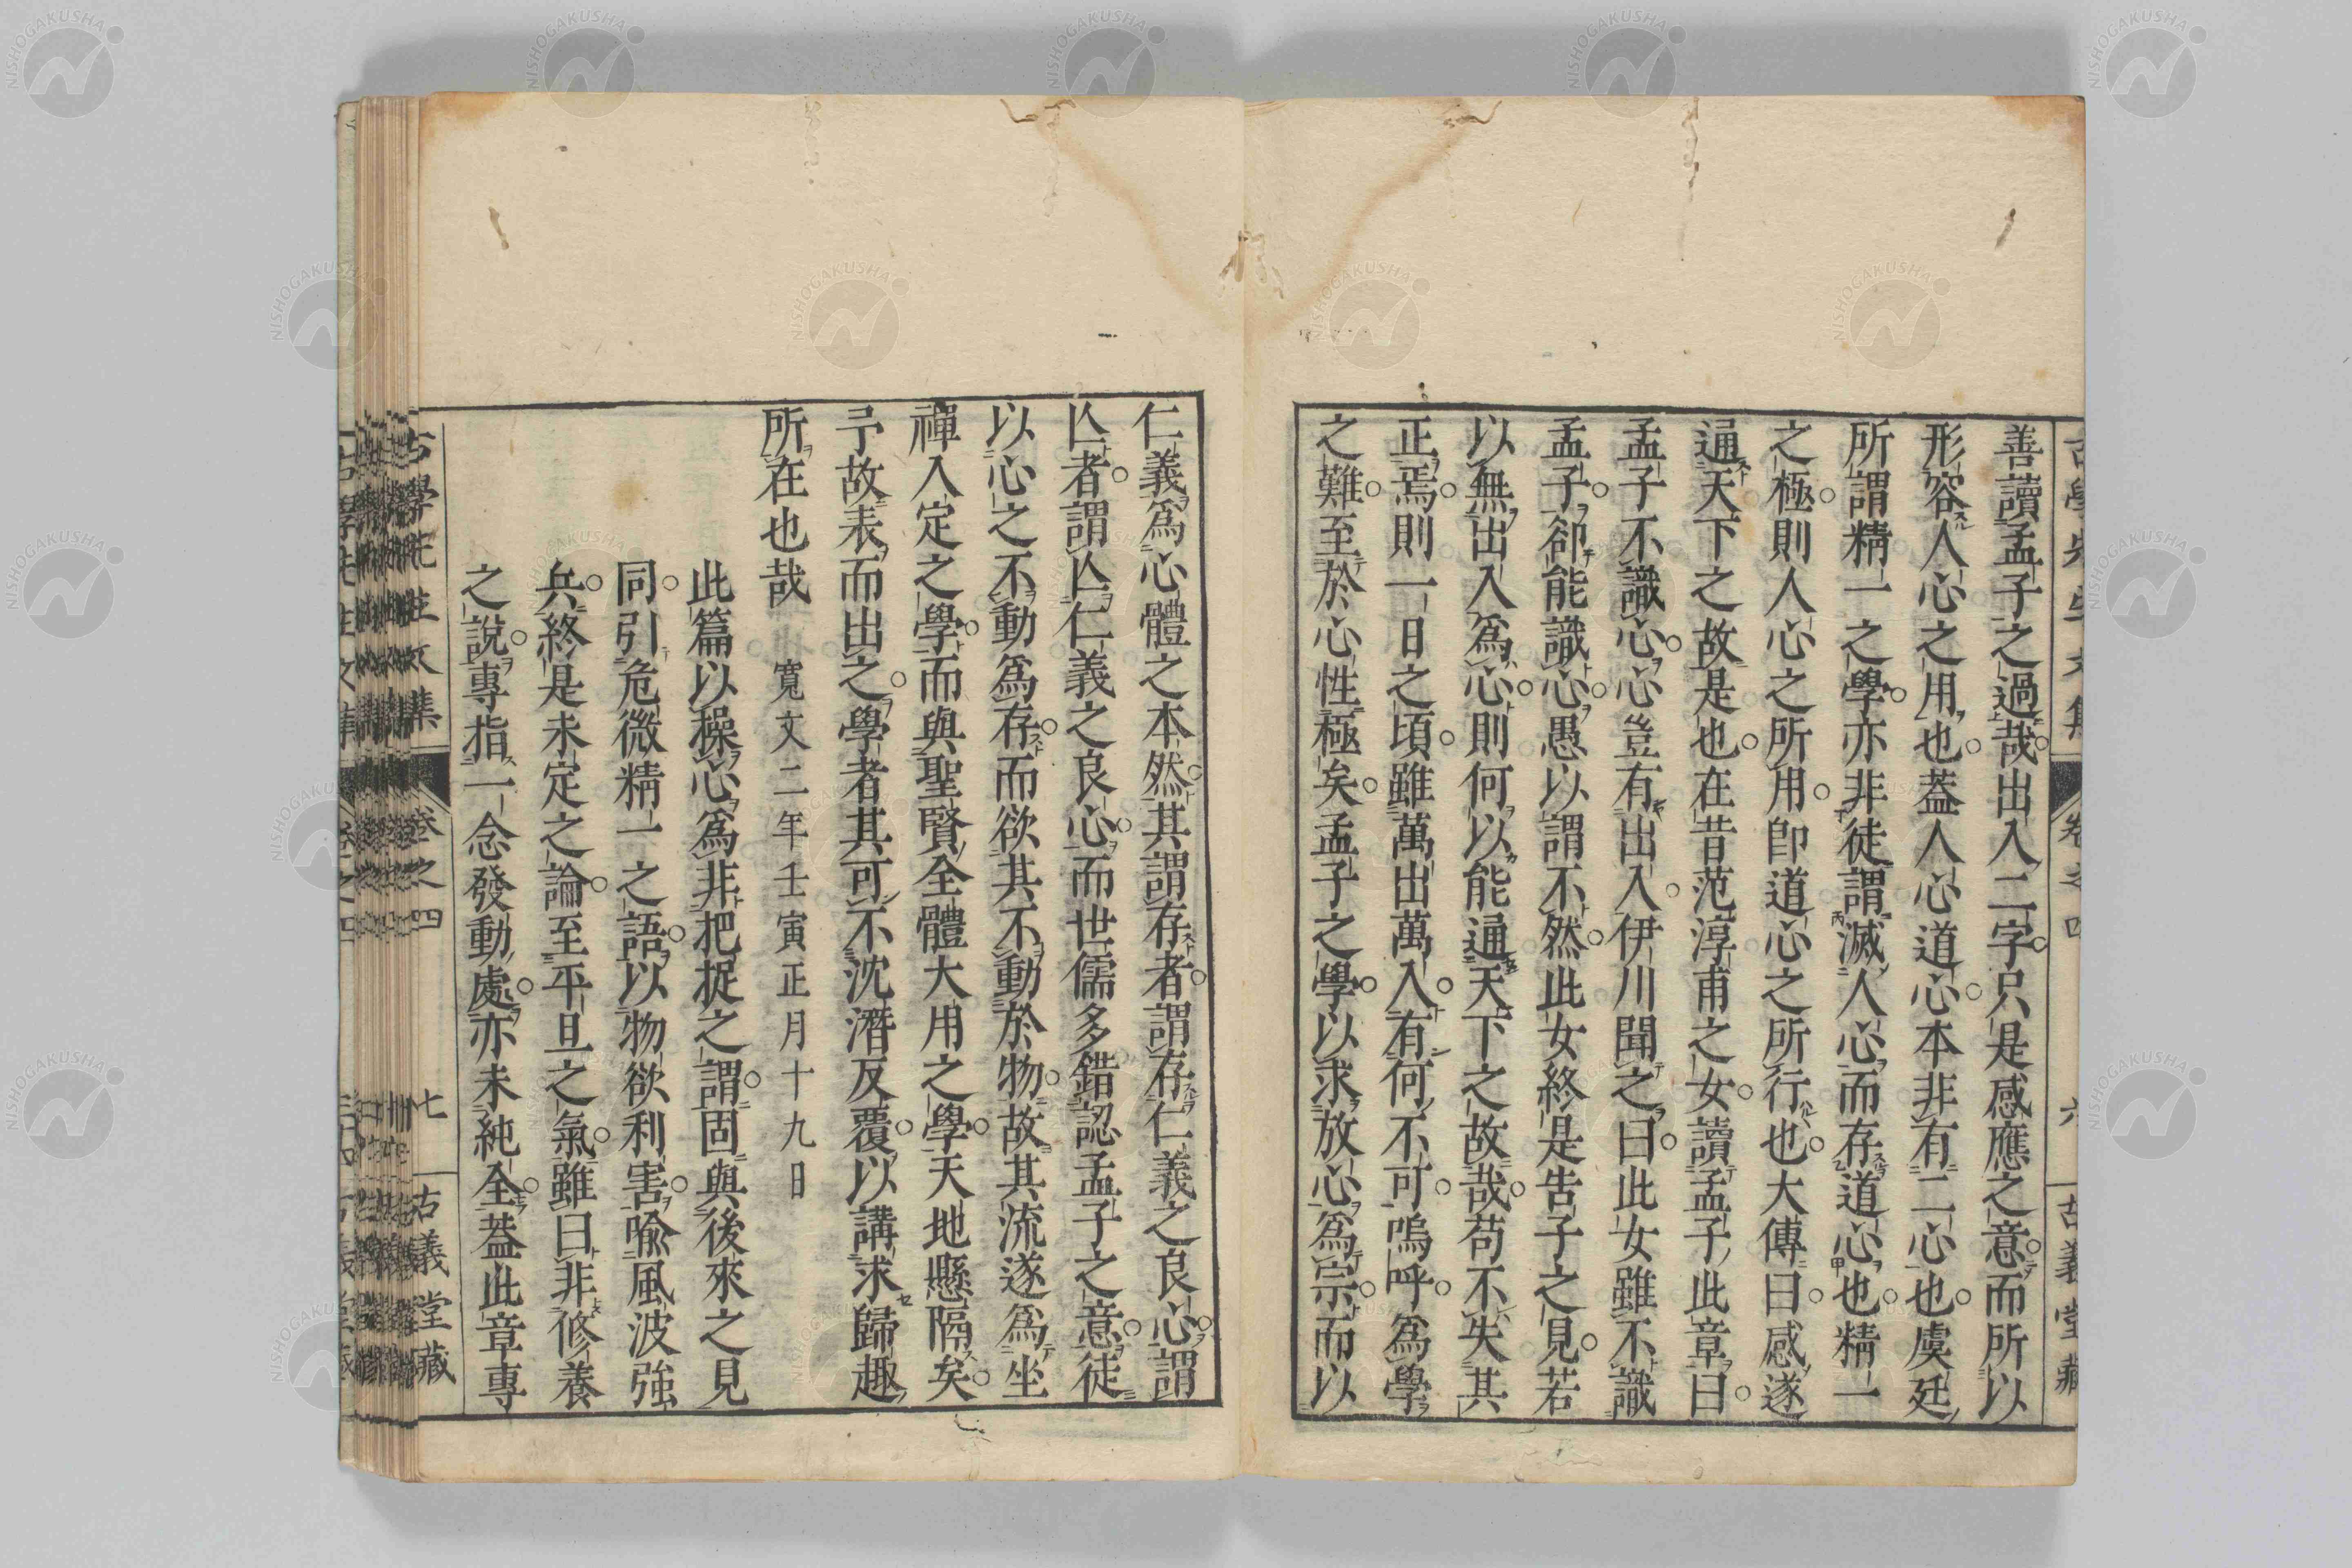 善讀孟子之過哉出入二字只是感應之意而所以
形容人心之用也蓋人心道心本非有二心也虞廷
所謂精一之學亦非徒謂滅人心而存道心也精一
之極則人心之所用卽道心之所行也大傳曰感遂
通天下之故是也在昔范淳甫之女讀孟子此章曰
孟子不識心心豈有出入伊川聞之曰此女雖不識
孟子卻能識心愚以謂不然此女終是告子之見若
以無出入爲心則何以能通天下之故哉苟不失其
正焉則一日之頃雖萬出萬入有何不可嗚呼爲學
之難至於心性極矣孟子之學以求放心爲宗而以
仁義爲心體之本然其謂存者謂存仁義之良心謂
亾者謂亾仁義之良心而世儒多錯認孟子之意徒
以心之不動爲存而欲其不動於物故其流遂爲坐
禪入定之學而與聖賢全體大用之學天地懸隔矣
予故表而出之學者其可不沈潛反覆以講求歸趣
所在也哉 寬文二年壬寅正月十九日
此篇以操心爲非把捉之謂固與後來之見
同引危微精一之語以物欲利害喩風波強
兵終是未定之論至平旦之氣雖曰非修養
之說專指一念發動處亦未純全蓋此章專
古學先生文集 卷之四 七 古義堂藏